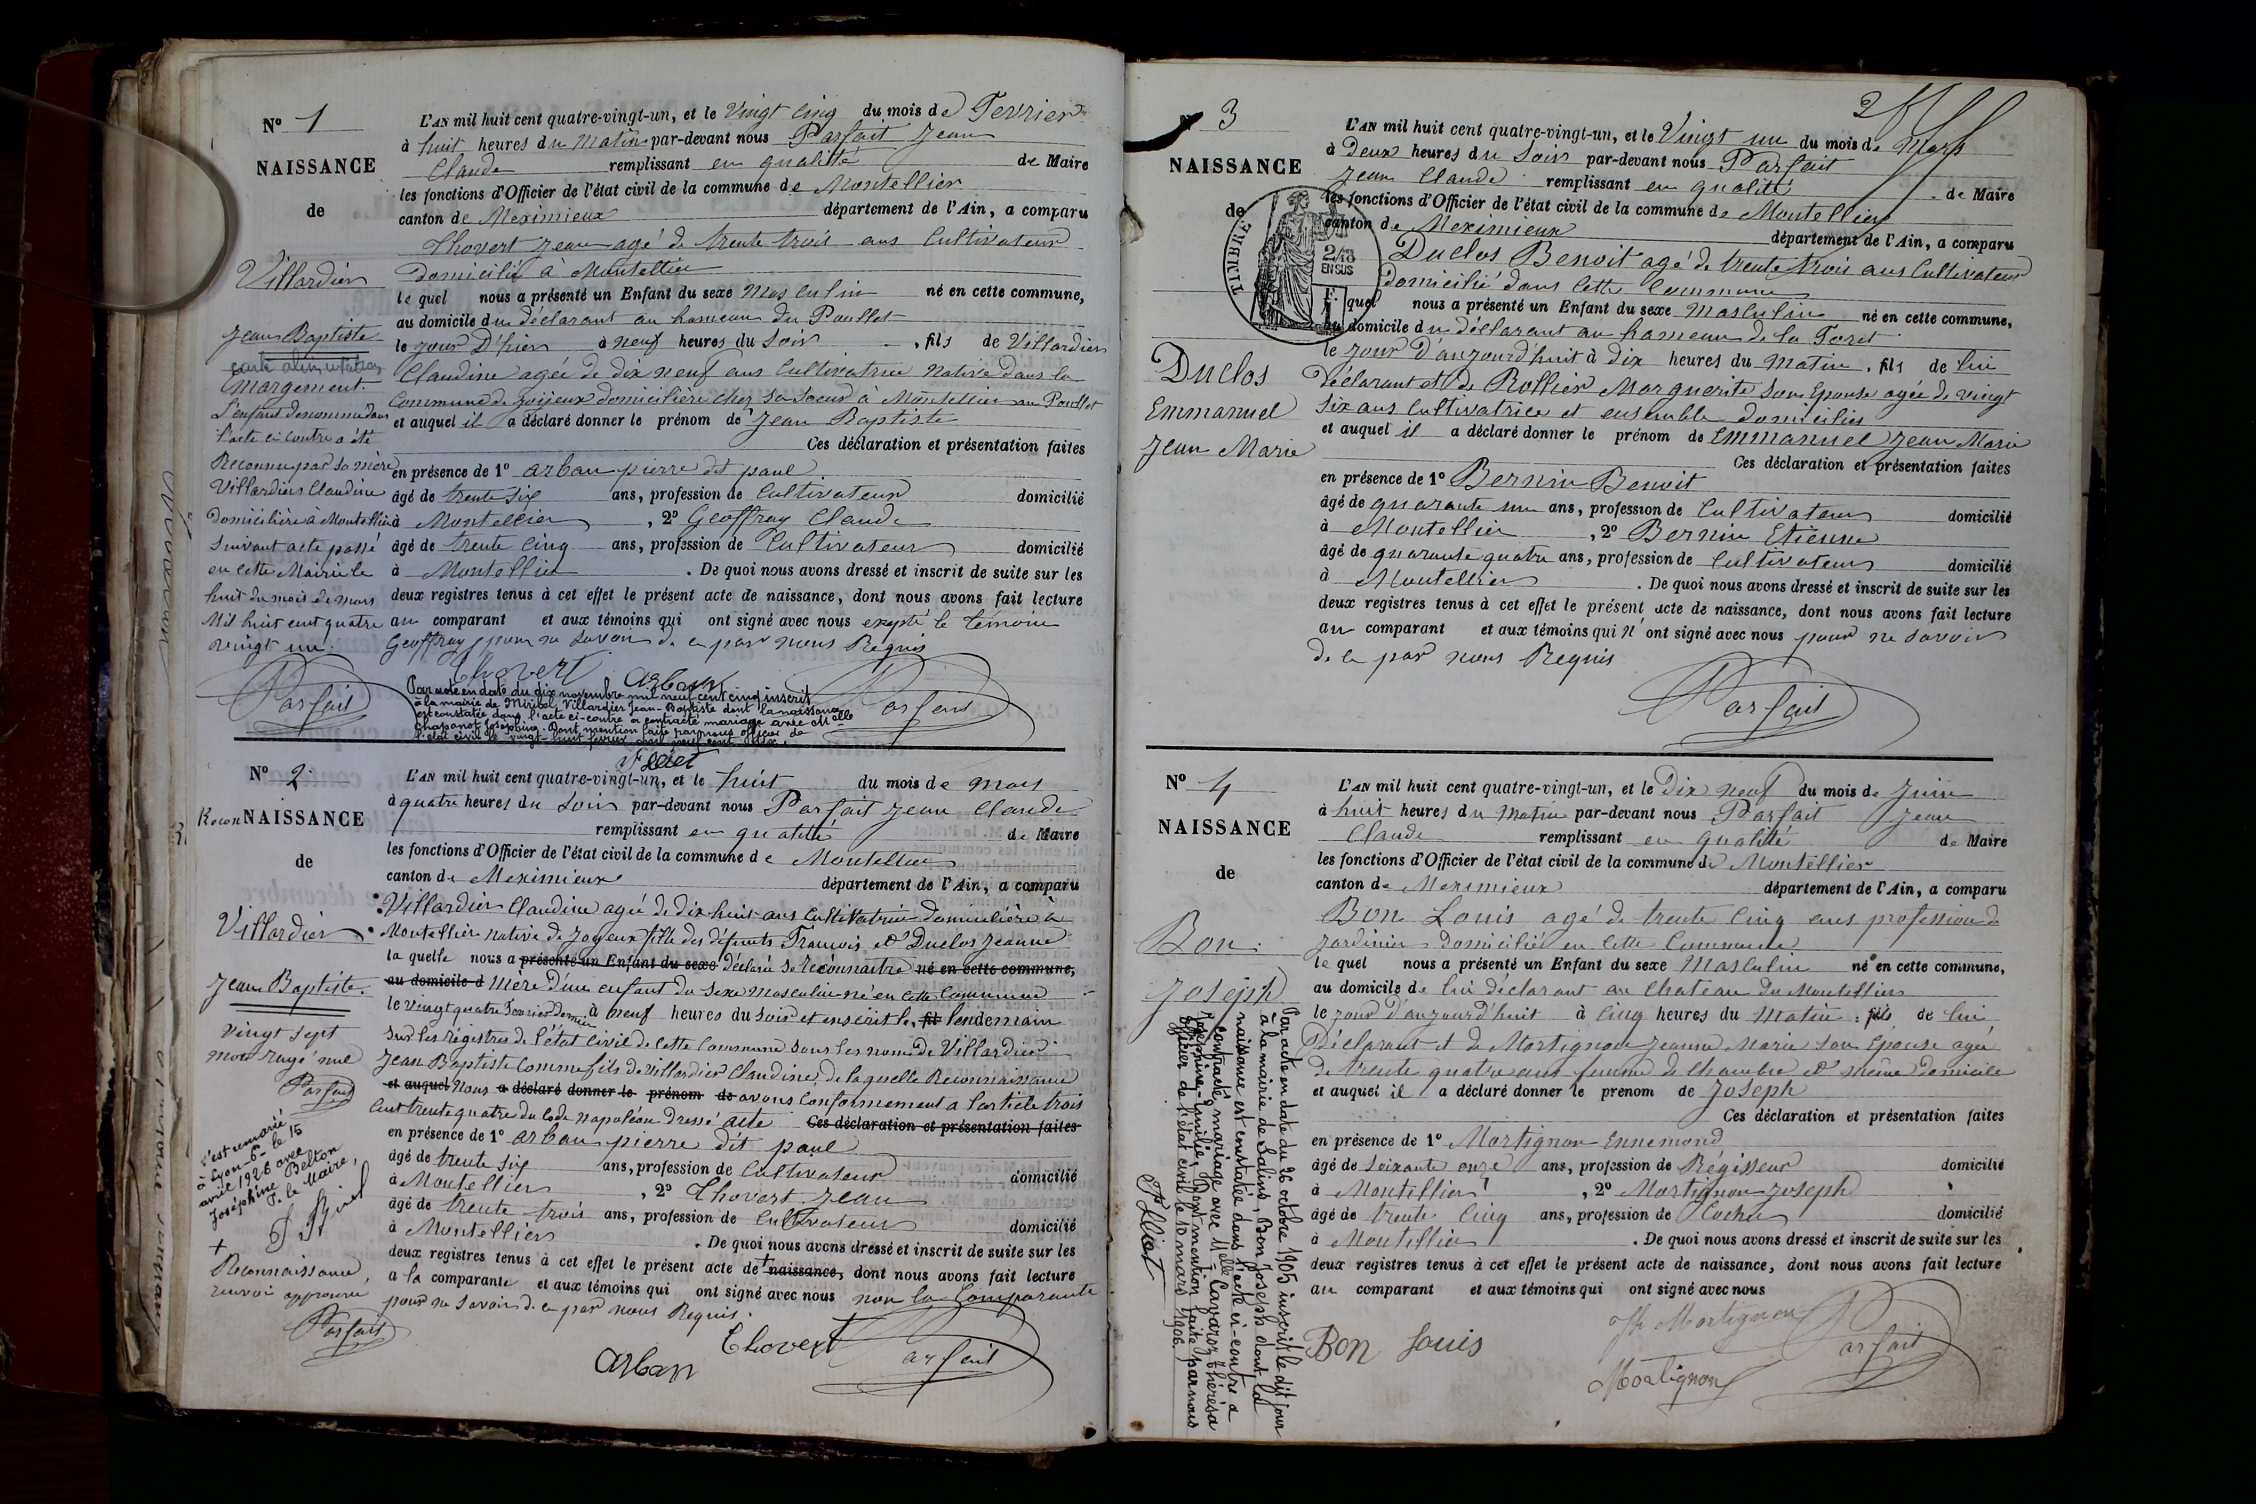 N° 1
NAISSANCE
de
Villardier
Jean Baptiste
margement.
L'enfant denommé dans
l'acte ci contre a été
Reconnu par sa mère
Villardier Claudine
domicilière à Montellier
suivant acte passé
en cette Mairie le
huit du mois de mars
Mil huit cent quatre
vingt un
Parfait
L'AN mil huit cent quatre-vingt-un, et le Vingt Cinq du mois de Fevrier
à huit heures du Matin par-devant nous Parfait Jean
Claude remplissant en qualité de Maire
les fonctions d'Officier de l'état civil de la commune de Montellier
canton de Meximieux département de l'Ain, a comparu
Thovert Jean agé de trente trois ans Cultivateur
Domicilié à Montellier
le quel nous a présenté un Enfant du sexe Masculin né en cette commune,
au domicile du déclarant au hameau du Poullet
le jour D'hier à neuf heures du Soir, fils de Villardier
Claudine agée de dix neuf ans Cultivatrice native dans la
Commune de Joijeux domicilière chez sa Sœur à Montellier au Poullet
et auquel il a déclaré donner le prénom de Jean Baptiste
Ces déclaration et présentation faites
en présence de 1° arban pierre dit paul
âgé de trente six ans, profession de Cultivateur domicilié
à Montellier, 2° Geoffray Claude
âgé de trente Cinq ans, profession de Cultivateur domicilié
à Montellier. De quoi nous avons dressé et inscrit de suite sur les
deux registres tenus à cet effet le présent acte de naissance, dont nous avons fait lecture
au comparant et aux témoins qui ont signé avec nous exepté le témoin
Geoffray pour ne savoir de ce par nous Requis
Thovert Arban
Parfait
Par acte en date du dix novembre mil neuf cent cinq inscrit
à la mairie de Miribel, Villardier Jean-Baptiste dont la naissance
est constatée dans l'acte ci-contre a contracté mariage avec Melle
Chapanot Joséphine. Dont mention faite par nous officier de
l'état civil le vingt-huit février mil neuf cent six.
N° 2
Recon NAISSANCE
de
Villardier
Jean Baptiste.
Vingt sept
mot rayé nul
Parfait
s'est remarié
à Lyon-6e- le 15
avril 1926 avec
Joséphine Belton
P. le Maire,
+
Reconnaissance
renvoi approuvé
Parfait
L'AN mil huit cent quatre-vingt-un, et le huit du mois de mars
à quatre heures du Soir par-devant nous Parfait Jean Claude
remplissant en qualité de Maire
les fonctions d'Officier de l'état civil de la commune de Montellier
canton de Meximieux département de l'Ain, a comparu
Villardier Claudine agée de dix huit ans Cultivatrice domicilière à
Montellier native de Joyeux fille des défunts François et Duclos Jeanne
la quelle nous a présenté un Enfant du sexe déclaré se reconnaitre né en cette commune,
au domicile d Mère d'un enfant du Sexe masculin né en cette Commune
le Vingt quatre Fevrier dernier à neuf heures du Soir et inscrit le, fil lendemain
sur les régistres de l'état Civil de cette Commune sous les noms de Villardier
Jean Baptiste Comme fils de Villardier Claudine, de laquelle Reconnaissance
et auquel Nous a déclaré donner le prénom de avons Conformement a l'article trois
Cent trente quatre du Code Napoléon dressé acte Ces déclaration et présentation faites
en présence de 1° arban pierre dit paul
âgé de trente six ans, profession de Cultivateur domicilié
à Montellier, 2° Thovert Jean
âgé de trente trois ans, profession de Cultivateur domicilié
à Montellier. De quoi nous avons dressé et inscrit de suite sur les
deux registres tenus à cet effet le présent acte de + naissance, dont nous avons fait lecture
a la comparante et aux témoins qui ont signé avec nous non la Comparante
pour ne savoir de ce par nous Requis.
Arban Thovert Parfait
2
3
NAISSANCE
de
TIMBRE
2/10
EN SUS
Duclos
Emmanuel
Jean Marie
L'AN mil huit cent quatre-vingt-un, et le Vingt un du mois de Mars
à Deux heures du Soir par-devant nous Parfait
Jean Claude remplissant en qualité de Maire
les fonctions d'Officier de l'état civil de la commune de Montellier
canton de Meximieux département de l'Ain, a comparu
Duclos Benoit agé de trente trois ans Cultivateur
domicilié dans cette Commune
quel nous a présenté un Enfant du sexe Masculin né en cette commune,
au domicile du déclarant au hameau de la Foret
le jour D'aujourd'huit à dix heures du matin, fils de lui
Déclarant et de Rollier Marguerite son Epouse agée de vingt
six ans Cultivatrice et ensemble domiciliés
et auquel il a déclaré donner le prénom de Emmanuel Jean Marie
Ces déclaration et présentation faites
en présence de 1° Bernin Benoit
âgé de quarante un ans, profession de Cultivateur domicilié
à Montellier, 2° Bernin Etienne
âgé de quarante quatre ans, profession de Cultivateur domicilié
à Montellier. De quoi nous avons dressé et inscrit de suite sur les
deux registres tenus à cet effet le présent acte de naissance, dont nous avons fait lecture
au comparant et aux témoins qui n'ont signé avec nous pour ne savoir
de ce par nous Requis
Parfait
N° 4
NAISSANCE
de
Bon
Joseph
Par acte en date du 26 octobre 1905 inscrit le dit jour
à la mairie de Salins, Bon Joseph dont la
naissance est constatée dans l'acte ci-contre a
contracté mariage avec Melle Lavaroz Thérésa
Joséphine-Emilie, Dont mention faite par nous
officier de l'état civil le 10 mars 1906.
L'AN mil huit cent quatre-vingt-un, et le Dix neuf du mois de Juin
à huit heures du Matin par-devant nous Parfait Jean
Claude remplissant en qualité de Maire
les fonctions d'Officier de l'état civil de la commune de Montellier
canton de Meximieux département de l'Ain, a comparu
Bon Louis agé de trente Cinq ans profession de
Jardinier domicilié en cette Commune
le quel nous a présenté un Enfant du sexe Masculin né en cette commune,
au domicile de lui déclarant au Chateau du Montellier
le jour D'aujourd'huit à Cinq heures du Matin: fils de lui
Déclarant et de Martignon Jeanne Marie son Epouse agée
de trente quatre ans femme de Chambre et même domicile
et auquel il a déclaré donner le prenom de Joseph
Ces déclaration et présentation faites
en présence de 1° Martignon Ennemond
âgé de Soixante onze ans, profession de Régisseur domicilié
à Montellier, 2° Martignon Joseph
âgé de trente Cinq ans, profession de Cocher domicilié
à Montellier. De quoi nous avons dressé et inscrit de suite sur les
deux registres tenus à cet effet le présent acte de naissance, dont nous avons fait lecture
au comparant et aux témoins qui ont signé avec nous
Bon Louis Jh Martignon Parfait
Martignon